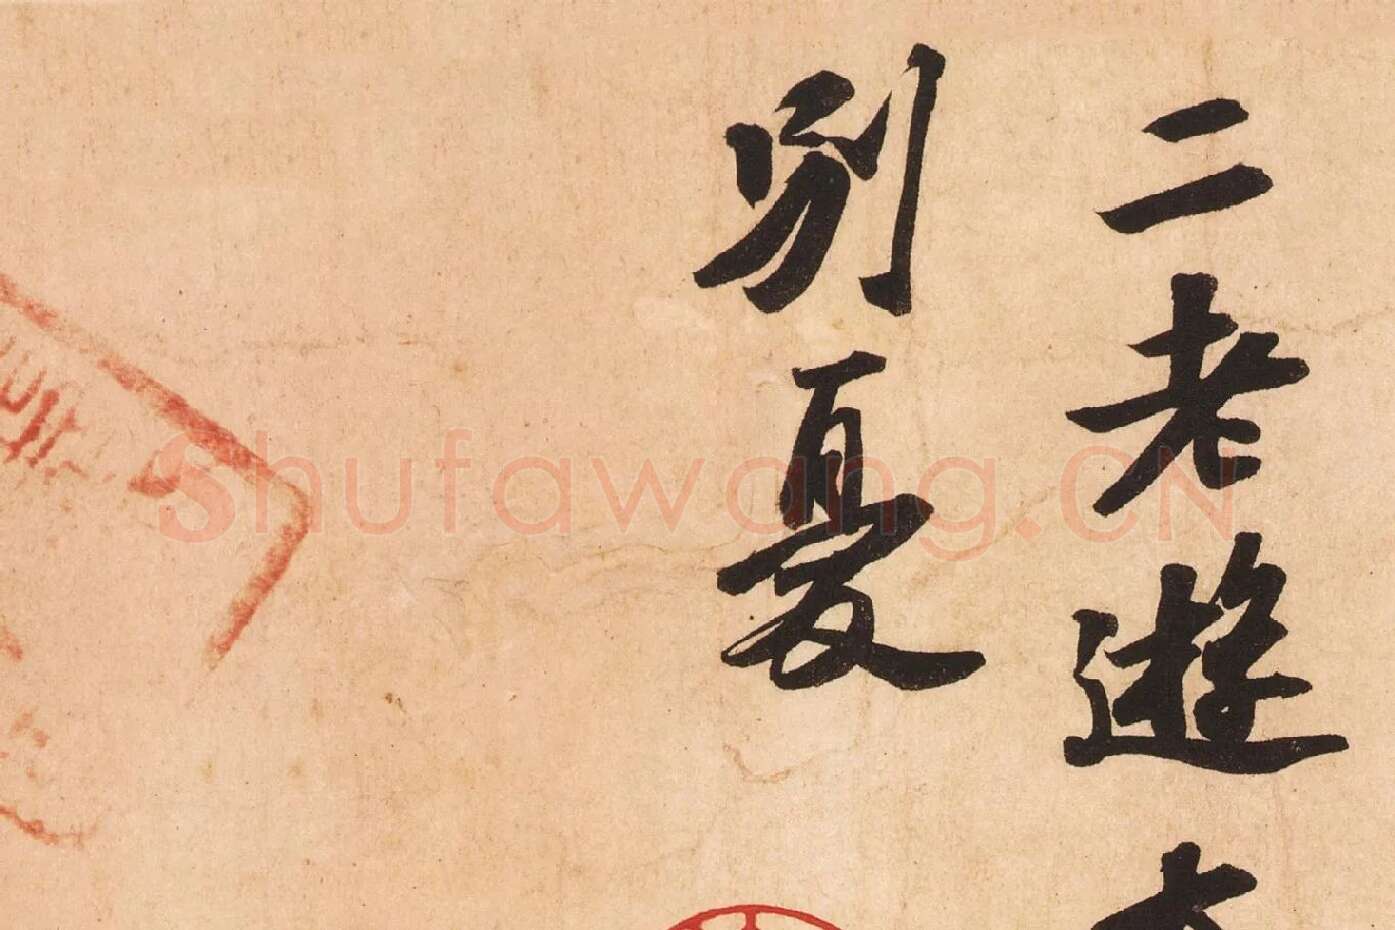 二老遊
別憂
Shufawang.CN